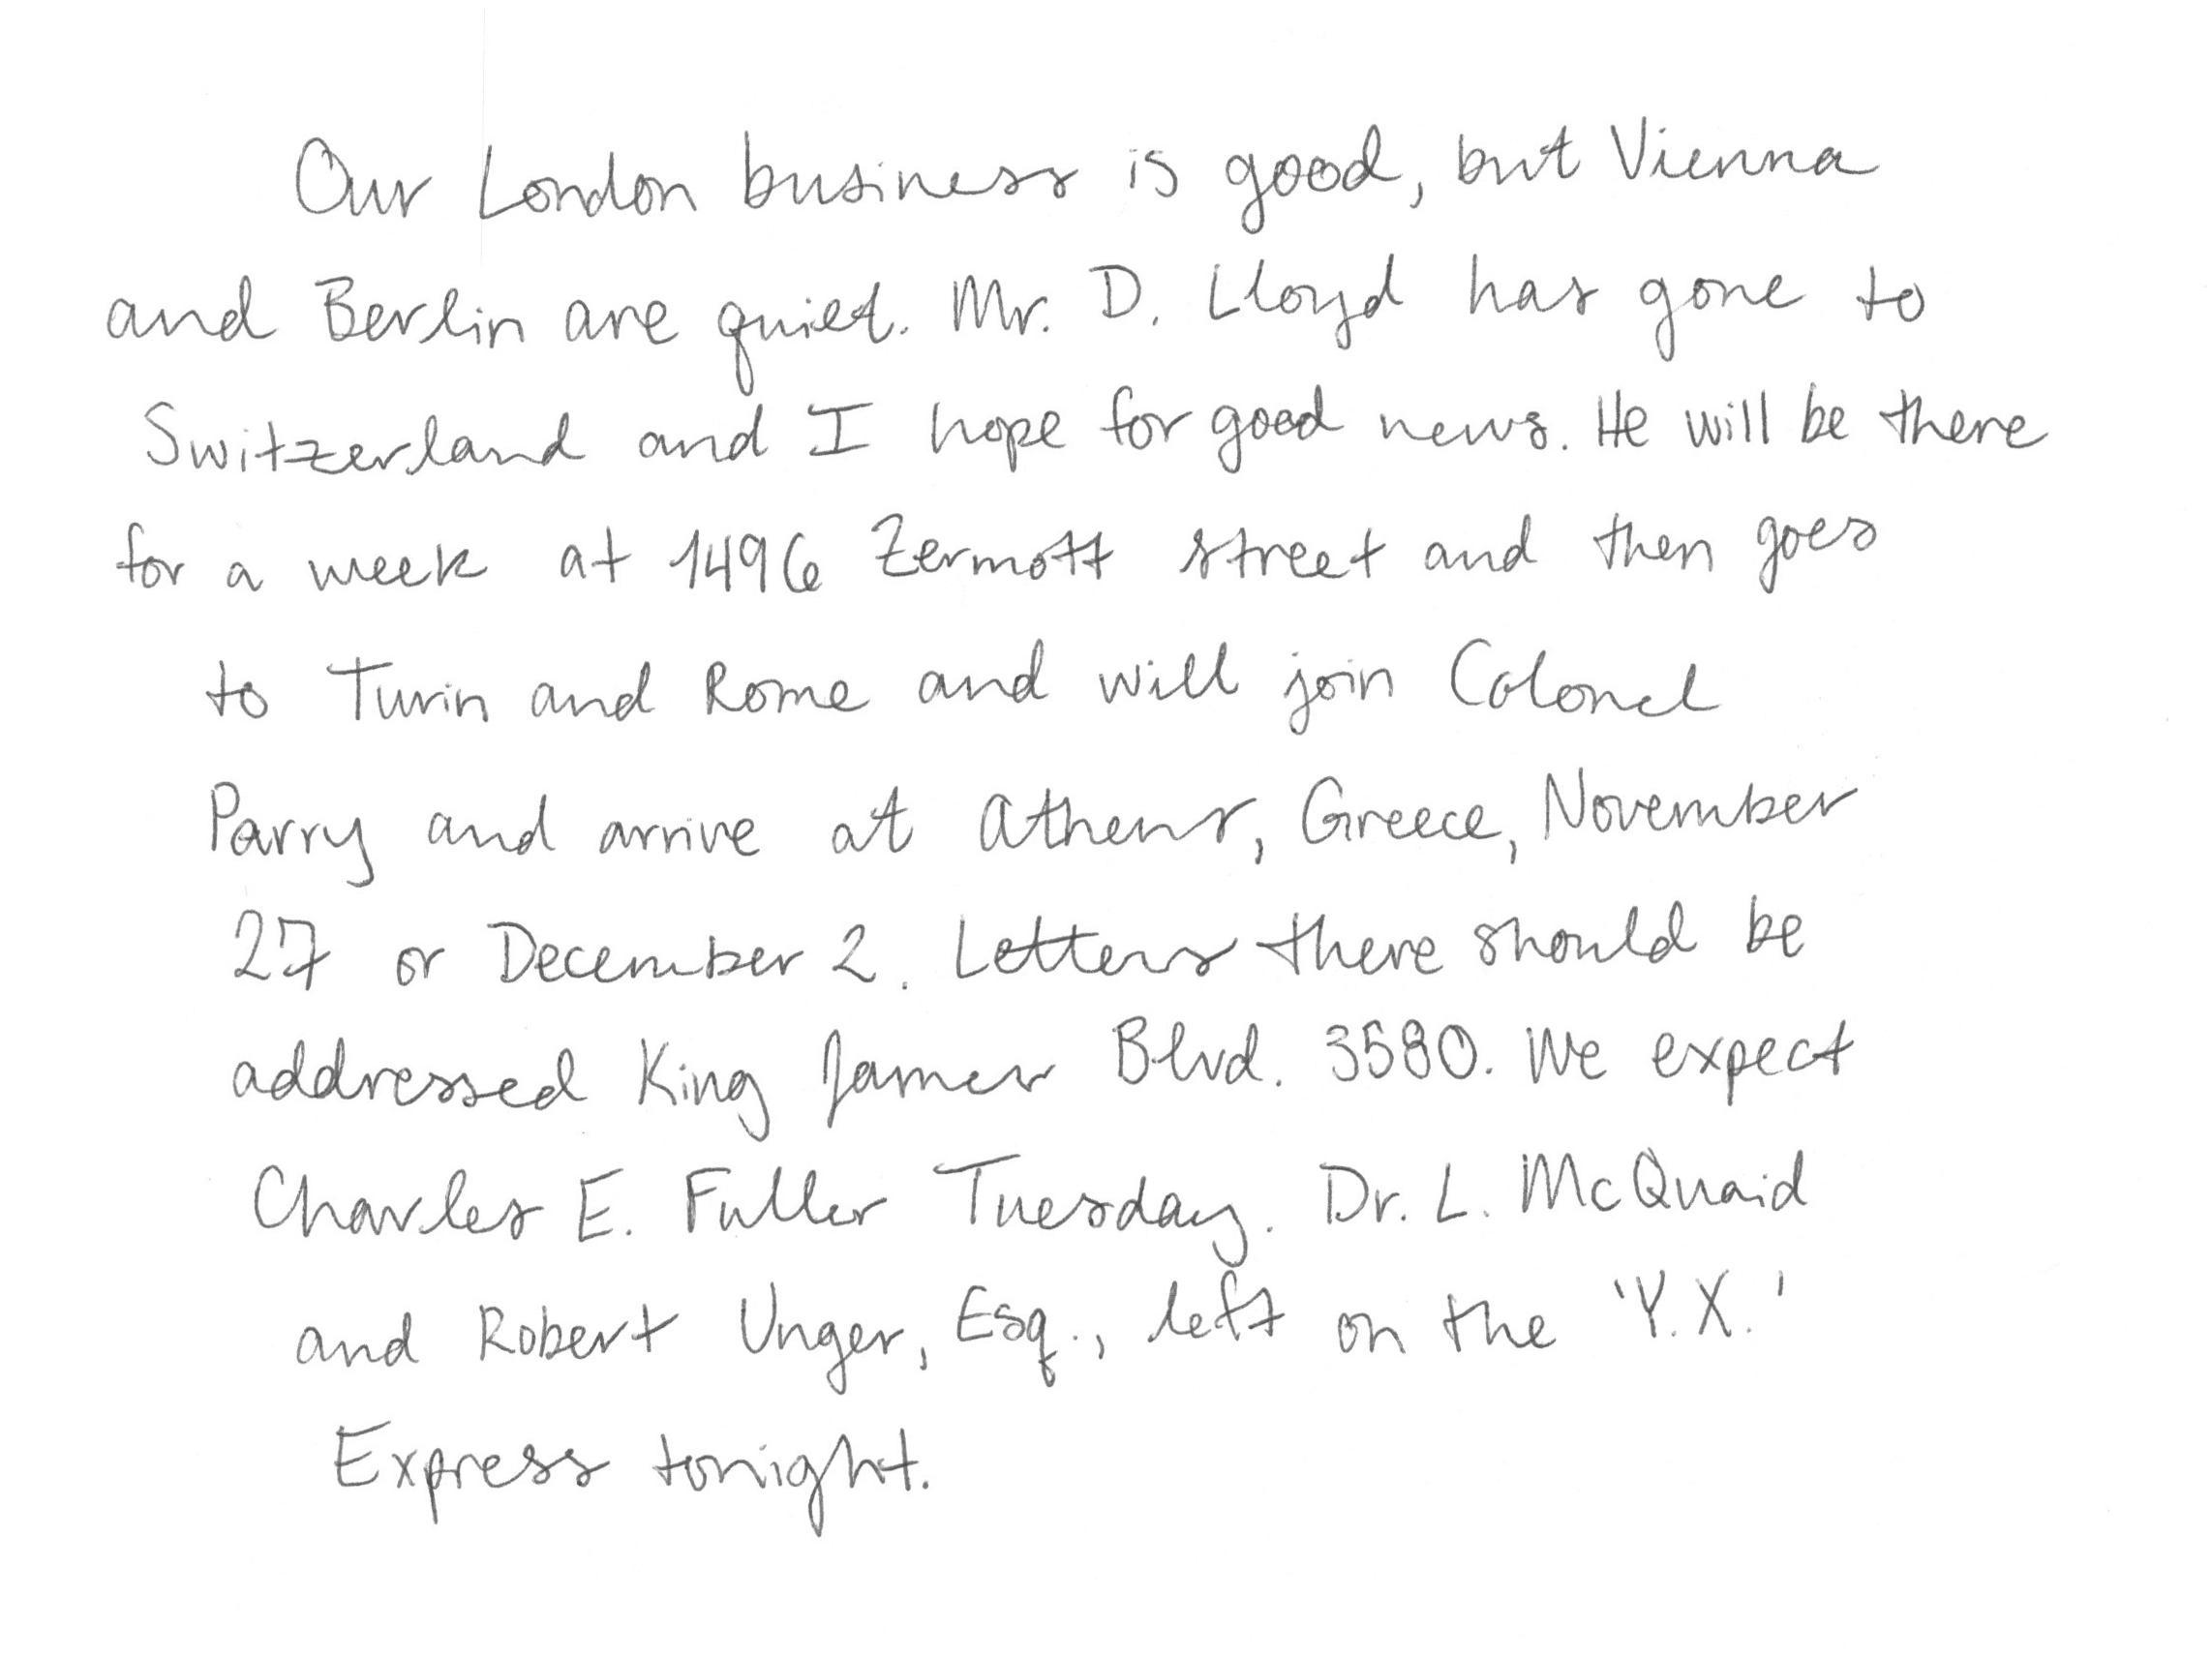 Our London business is good, but Vienna
and Berlin are quiet. Mr. D. Lloyd has gone to
Switzerland and I hope for good news. He will be there
for a week at 1496 Zermott street and then goes
to Turin and Rome and will join Colonel
Parry and arrive at Athens, Greece, November
27 or December 2. Letters there should be
addressed King James Blvd. 3580. We expect
Charles E. Fuller Tuesday. Dr. L. McQuaid
and Robert Unger, Esq., left on the 'Y.X.'
Express tonight.